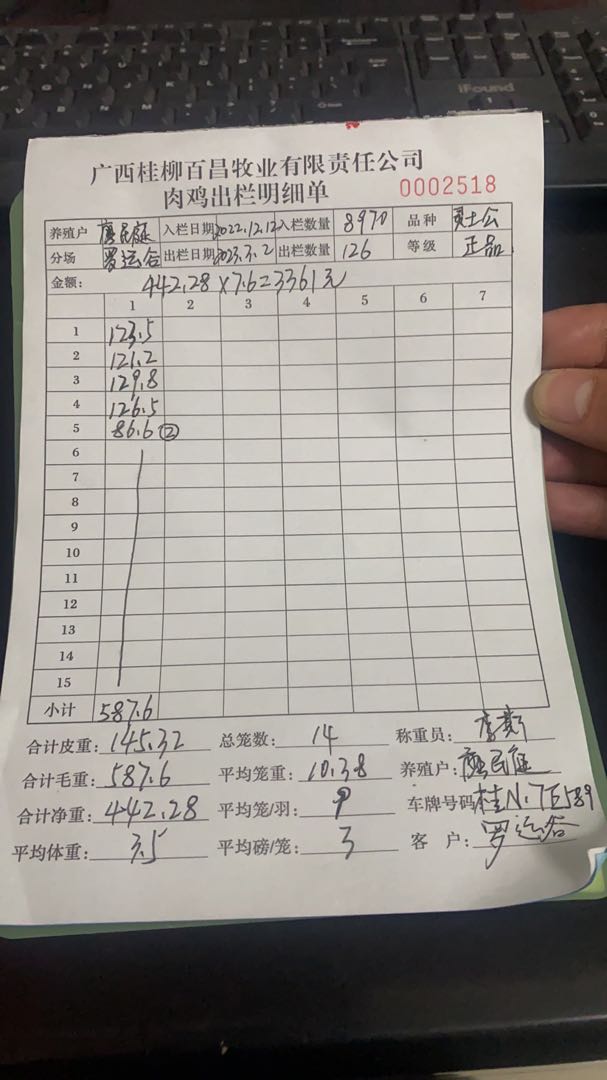 iFound
广西桂柳百昌牧业有限责任公司
肉鸡出栏明细单 0002518
养殖户 廖民庭 入栏日期 2022.12.12 入栏数量 8970 品种 勇士公
分场 罗运谷 出栏日期 2023.3.2 出栏数量 126 等级 正品
金额: 442.28×7.6=3361元
1 2 3 4 5 6 7
1 123.5
2 121.2
3 129.8
4 126.5
5 86.6 ②
6
7
8
9
10
11
12
13
14
15
小计 587.6
合计皮重: 145.32 总笼数: 14 称重员:
合计毛重: 587.6 平均笼重: 10.38 养殖户: 廖民庭
合计净重: 442.28 平均笼/羽: 9 车牌号码 桂N.7E589
平均体重: 3.5 平均磅/笼: 3 客户: 罗运谷